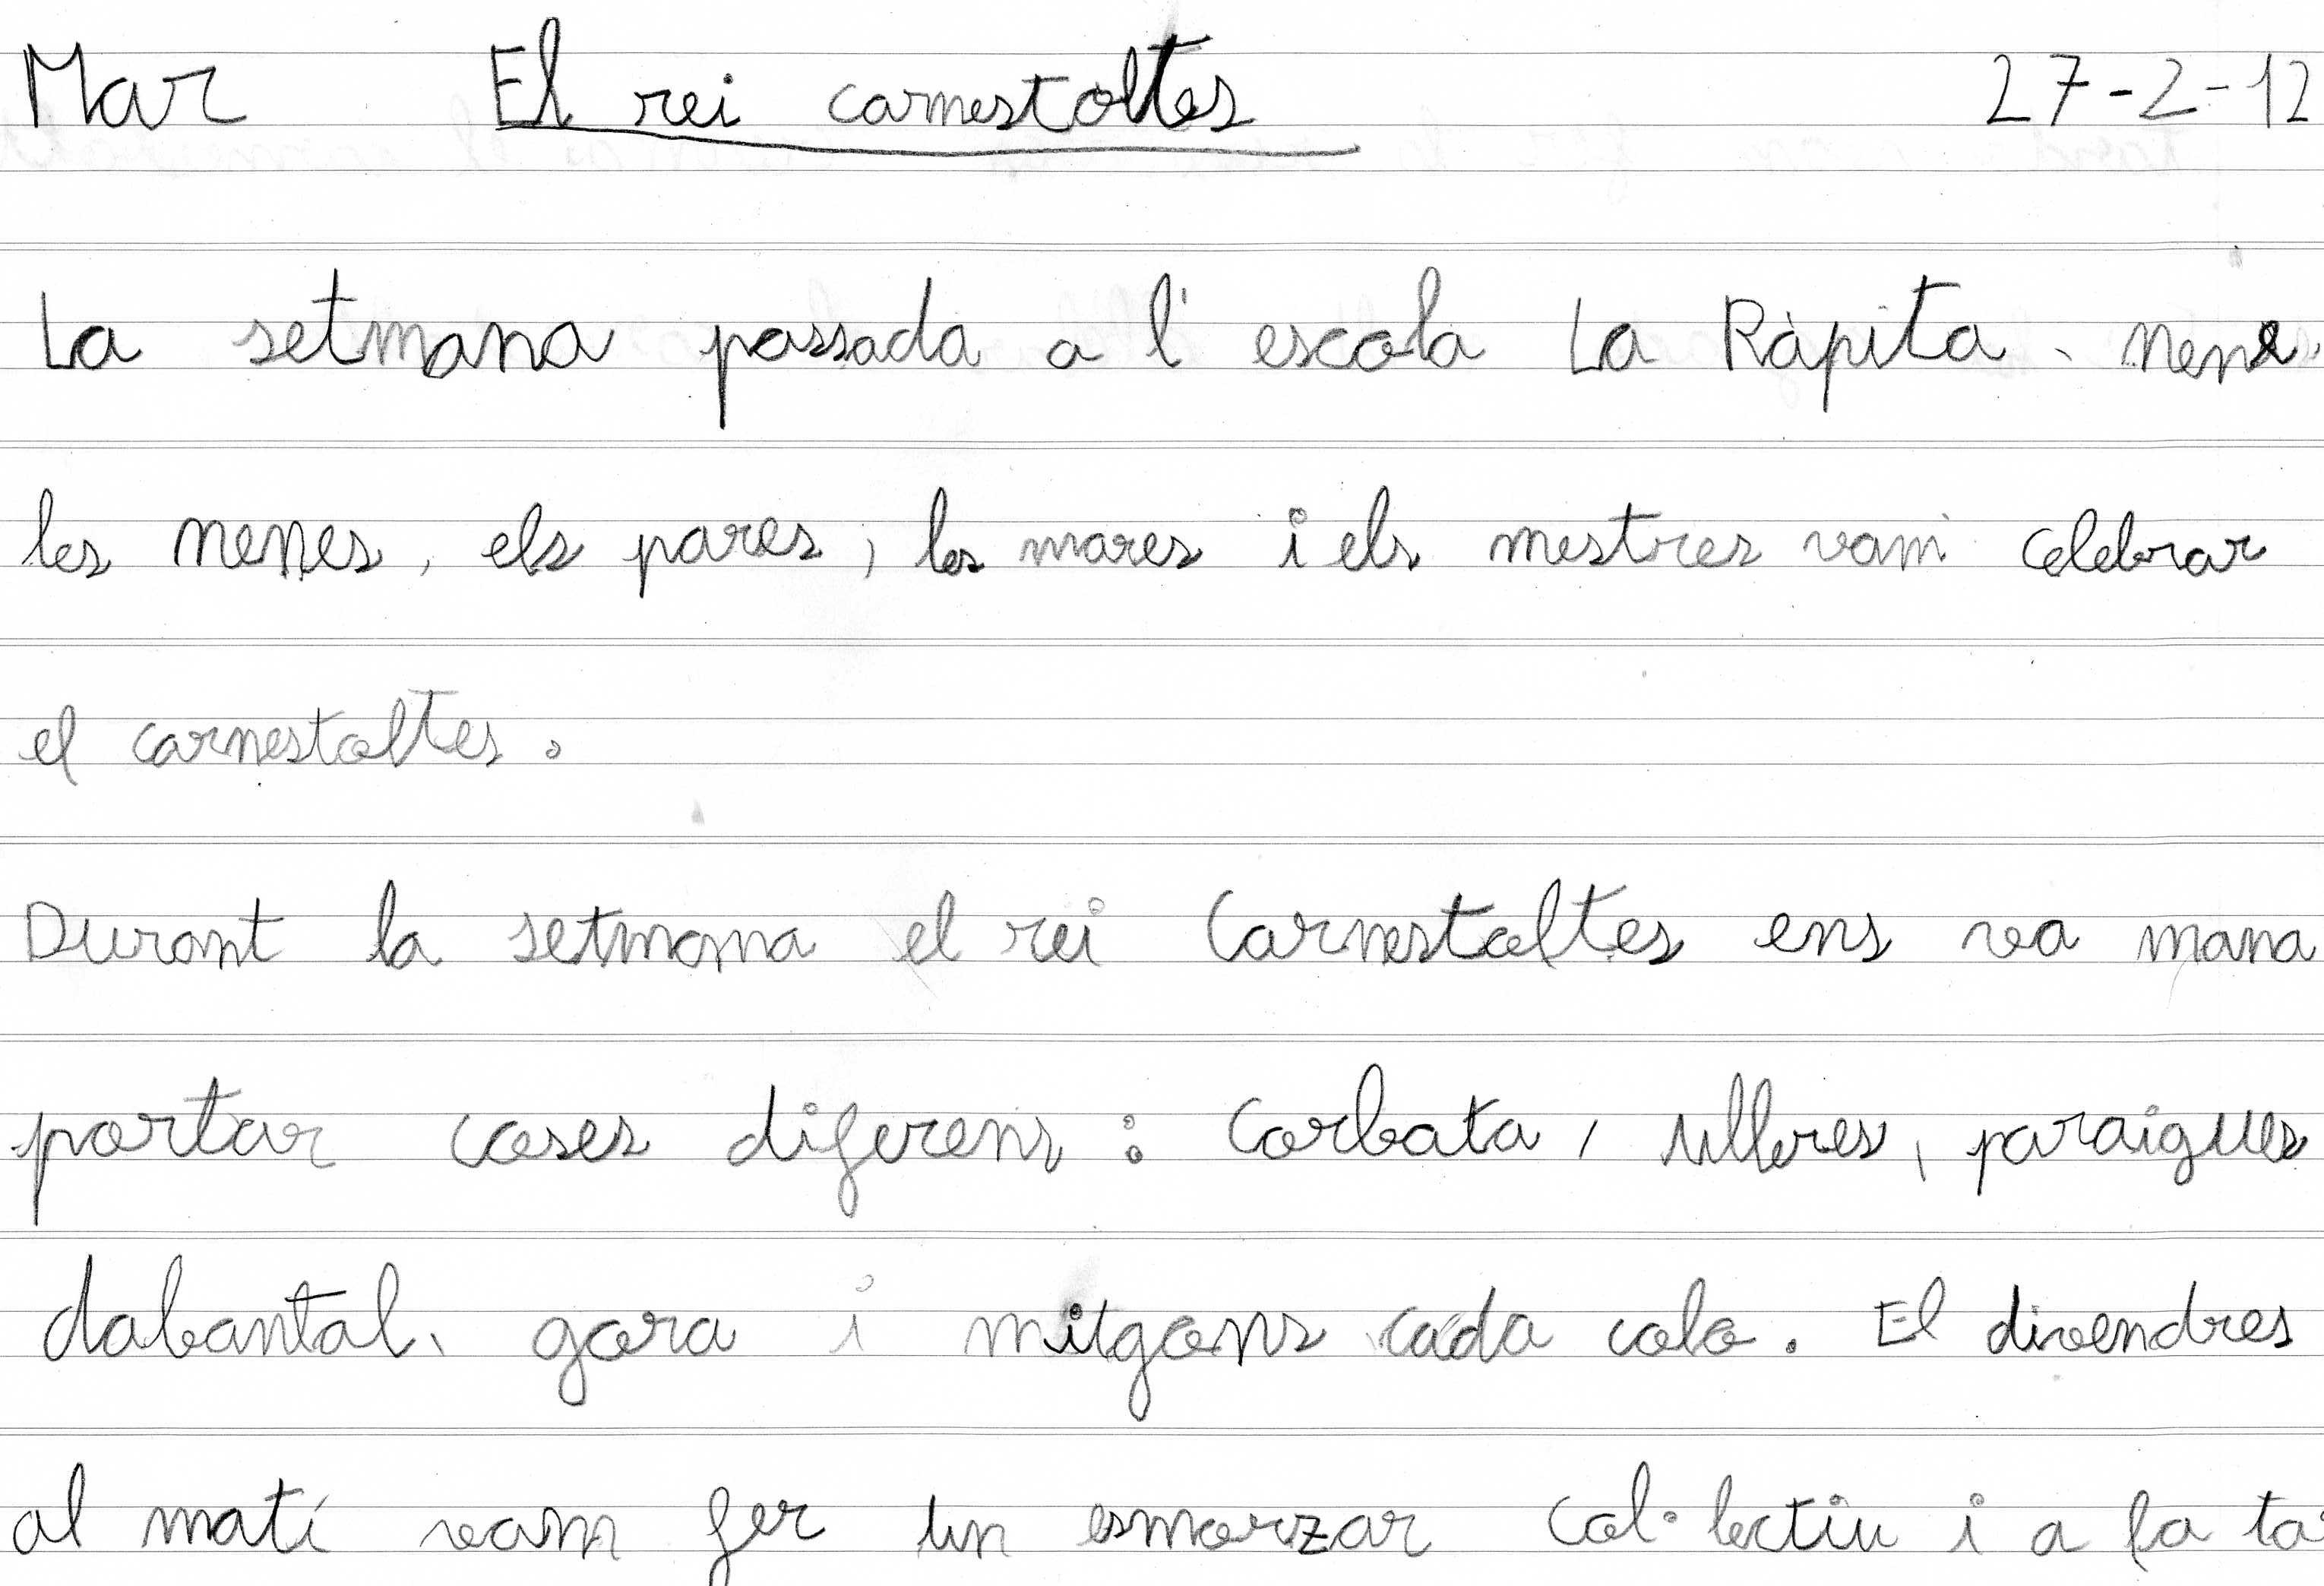 Mar El rei carnestoltes 27-2-12
La setmana passada a l' escola La Ràpita, nens,
les nenes, els pares, les mares i els mestres vam celebrar
el carnestoltes.
Durant la setmana el rei Carnestoltes ens va mana
portar coses diferens: Corbata, ulleres, paraigues
dabantal, gora i mitgons cada colo. El divendres
al matí vam fer un esmorzar Col·lectiu i a la ta